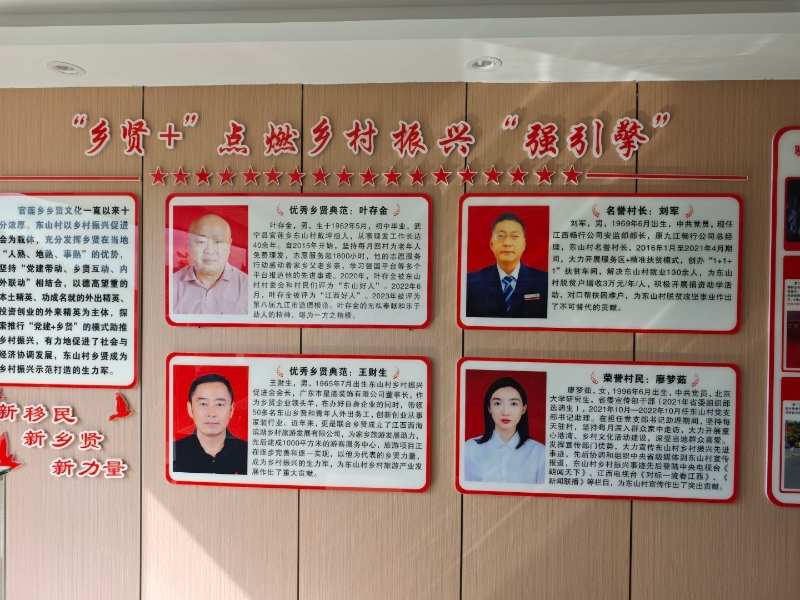 “乡贤+”点燃乡村振兴“强引擎”
官莲乡乡贤文化一直以来十
分浓厚。东山村以乡村振兴促进
会为载体，充分发挥乡贤在当地
“人熟、地熟、事熟”的优势，
坚持“党建带动、乡贤互动、内
外联动”相结合，以德高望重的
本土精英、功成名就的外出精英、
投资创业的外来精英为主体，探
索推行“党建+乡贤”的模式助推
乡村振兴，有力地促进了社会与
经济协调发展，东山村乡贤成为
乡村振兴示范打造的生力军。
新移民
新乡贤
新力量
优秀乡贤典范：叶存金
叶存金，男，生于1962年5月，初中毕业，武
宁县官莲乡东山村戴坪组人，从事理发工作长达
40余年。自2015年开始，坚持每月回村为老人
免费理发，志愿服务超1800小时，他的志愿服务
行动感动着家乡父老乡亲，学习强国平台等多个
平台报道他的先进事迹。2020年，叶存金被东山
村村委会和村民们评为“东山好人”。2022年6
月，叶存金被评为“江西好人”。2023年被评为
第八届九江市道德模范。叶存金的无私奉献和乐于
助人的精神，堪为一方之楷模。
名誉村长：刘军
刘军，男，1969年6月出生，中共党员，现任
江西畅行公司安监部部长，原九江畅行公司总经
理，东山村名誉村长。2016年1月至2021年4月期
间，大力开展服务区+精准扶贫模式，创办“1+1+
1”扶贫车间，解决东山村就业130余人，为东山
村脱贫户增收3万元/年/人，积极开展捐资助学活
动，对口帮扶困难户，为东山村脱贫攻坚事业作出了
不可替代的贡献。
优秀乡贤典范：王财生
王财生，男，1965年7月出生东山村乡村振兴
促进会会长，广东市星港装饰有限公司董事长，作
为乡贤企业领头羊，在办好自身企业的同时，带领
50多名东山乡贤和青年人外出务工，创新创业从事
家装行业。近年来，更是联合乡贤成立了江西西海
滨湖乡村旅游发展有限公司，为家乡旅游发展助力，
先后建成1000平方米的游客服务中心，旅游项目正
在逐步完善和逐一实现，以他为代表的乡贤力量，
成为乡村振兴的生力军，为东山村乡村旅游产业发
展作出了重大贡献。
荣誉村民：廖梦茹
廖梦茹，女，1996年8月出生，中共党员，北京
大学研究生，省委宣传部干部（2021年省委组织部
选调生），2021年10月—2022年10月任东山村党支
部书记助理。在担任党支部书记助理期间，坚持每
天驻村，坚持每月深入群众家中走访，大力开展童
心港湾、乡村文化活动建设，深受当地群众喜爱。
发挥宣传部门优势，大力宣传东山村乡村振兴先进
事迹，先后协调和组织中央省级媒体到东山村宣传
报道，东山村乡村振兴事迹先后登陆中央电视台《
朝闻天下》、江西电视台《对标一流看江西》、《
新闻联播》等栏目，为东山村宣传作出了突出贡献。